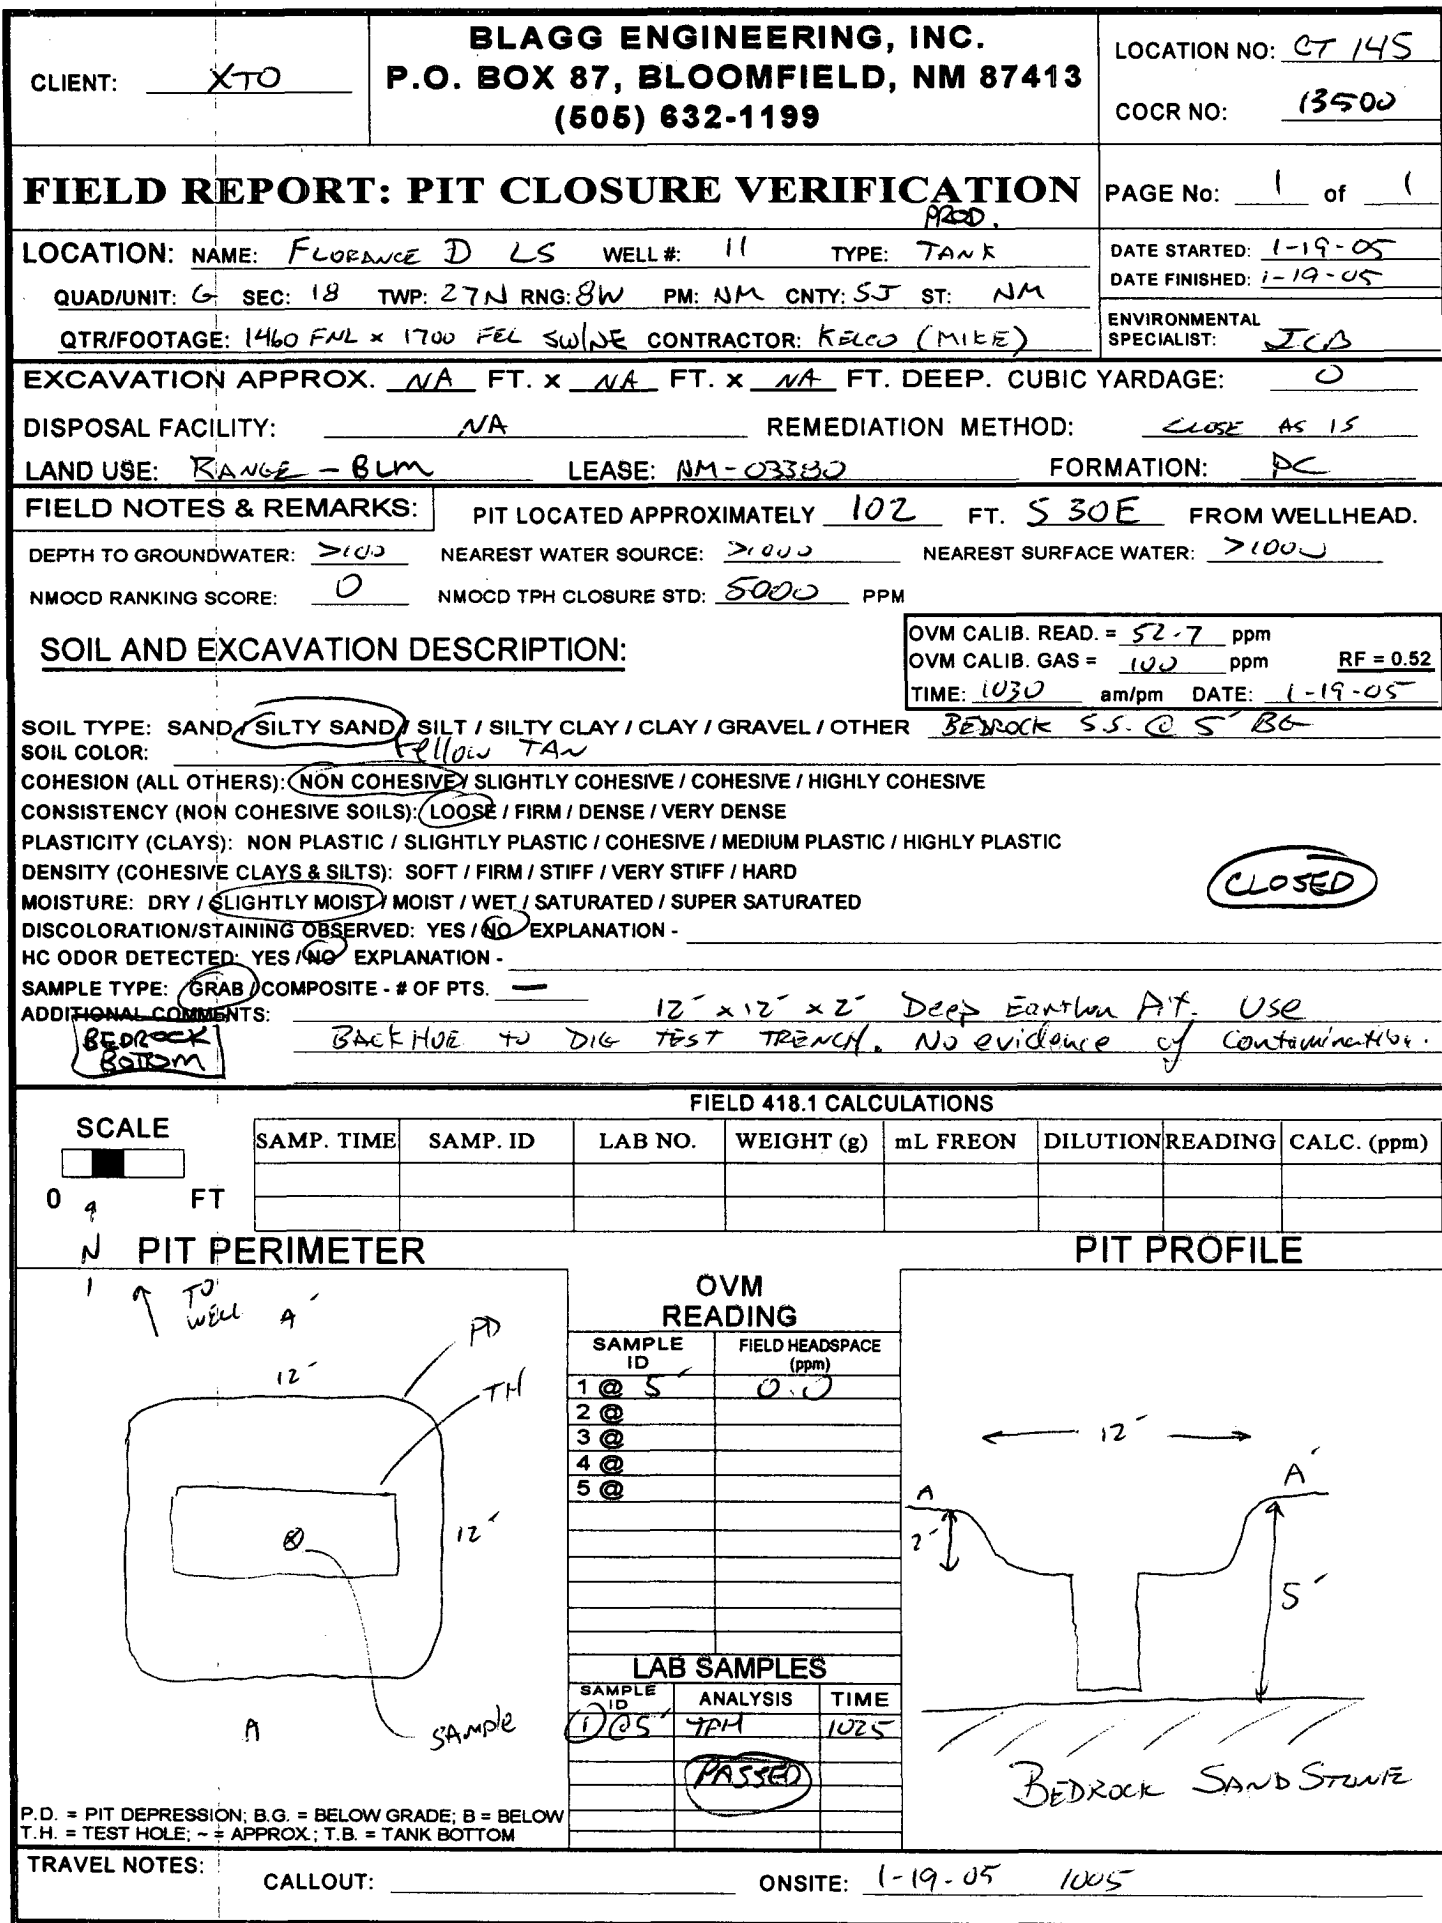 CLIENT: XTO
BLAGG ENGINEERING, INC.
P.O. BOX 87, BLOOMFIELD, NM 87413
(505) 632-1199
LOCATION NO: CT 145
COCR NO: 13500
FIELD REPORT: PIT CLOSURE VERIFICATION
PAGE No: 1 of 1
PROD.
LOCATION: NAME: FLORANCE D LS WELL #: 11 TYPE: TANK
QUAD/UNIT: G SEC: 18 TWP: 27N RNG: 8W PM: NM CNTY: SJ ST: NM
QTR/FOOTAGE: 1460 FNL x 1700 FEL SW/NE CONTRACTOR: KELCO (MIKE)
DATE STARTED: 1-19-05
DATE FINISHED: 1-19-05
ENVIRONMENTAL
SPECIALIST: JCB
EXCAVATION APPROX. NA FT. x NA FT. x NA FT. DEEP. CUBIC YARDAGE: 0
DISPOSAL FACILITY: NA REMEDIATION METHOD: CLOSE AS IS
LAND USE: RANGE - BLM LEASE: NM-03380 FORMATION: PC
FIELD NOTES & REMARKS: PIT LOCATED APPROXIMATELY 102 FT. S 30E FROM WELLHEAD.
DEPTH TO GROUNDWATER: >100 NEAREST WATER SOURCE: >1000 NEAREST SURFACE WATER: >1000
NMOCD RANKING SCORE: 0 NMOCD TPH CLOSURE STD: 5000 PPM
SOIL AND EXCAVATION DESCRIPTION:
OVM CALIB. READ. = 52.7 ppm
OVM CALIB. GAS = 100 ppm RF = 0.52
TIME: 1030 am/pm DATE: 1-19-05
SOIL TYPE: SAND / SILTY SAND / SILT / SILTY CLAY / CLAY / GRAVEL / OTHER BEDROCK S.S. @ 5' BG
SOIL COLOR: Yellow TAN
COHESION (ALL OTHERS): NON COHESIVE / SLIGHTLY COHESIVE / COHESIVE / HIGHLY COHESIVE
CONSISTENCY (NON COHESIVE SOILS): LOOSE / FIRM / DENSE / VERY DENSE
PLASTICITY (CLAYS): NON PLASTIC / SLIGHTLY PLASTIC / COHESIVE / MEDIUM PLASTIC / HIGHLY PLASTIC
DENSITY (COHESIVE CLAYS & SILTS): SOFT / FIRM / STIFF / VERY STIFF / HARD
MOISTURE: DRY / SLIGHTLY MOIST / MOIST / WET / SATURATED / SUPER SATURATED
CLOSED
DISCOLORATION/STAINING OBSERVED: YES / NO EXPLANATION -
HC ODOR DETECTED: YES / NO EXPLANATION -
SAMPLE TYPE: GRAB / COMPOSITE - # OF PTS. —
ADDITIONAL COMMENTS: 12' x 12' x 2' Deep Earthen Pit. Use
BACKHOE to DIG TEST TRENCH. No evidence of Contamination.
BEDROCK
BOTTOM
FIELD 418.1 CALCULATIONS
SCALE
0 FT
SAMP. TIME SAMP. ID LAB NO. WEIGHT (g) mL FREON DILUTION READING CALC. (ppm)
N
PIT PERIMETER
PIT PROFILE
TO
WELL
A'
PD
12'
TH
12'
A
SAMPLE
OVM
READING
SAMPLE
ID
FIELD HEADSPACE
(ppm)
1 @ 5' 0.0
2 @
3 @
4 @
5 @
LAB SAMPLES
SAMPLE
ID
ANALYSIS TIME
1 @5' TPH 1025
PASSED
12'
A
A'
2'
5'
BEDROCK SANDSTONE
P.D. = PIT DEPRESSION; B.G. = BELOW GRADE; B = BELOW
T.H. = TEST HOLE; ~ = APPROX.; T.B. = TANK BOTTOM
TRAVEL NOTES:
CALLOUT: ONSITE: 1-19-05 1005